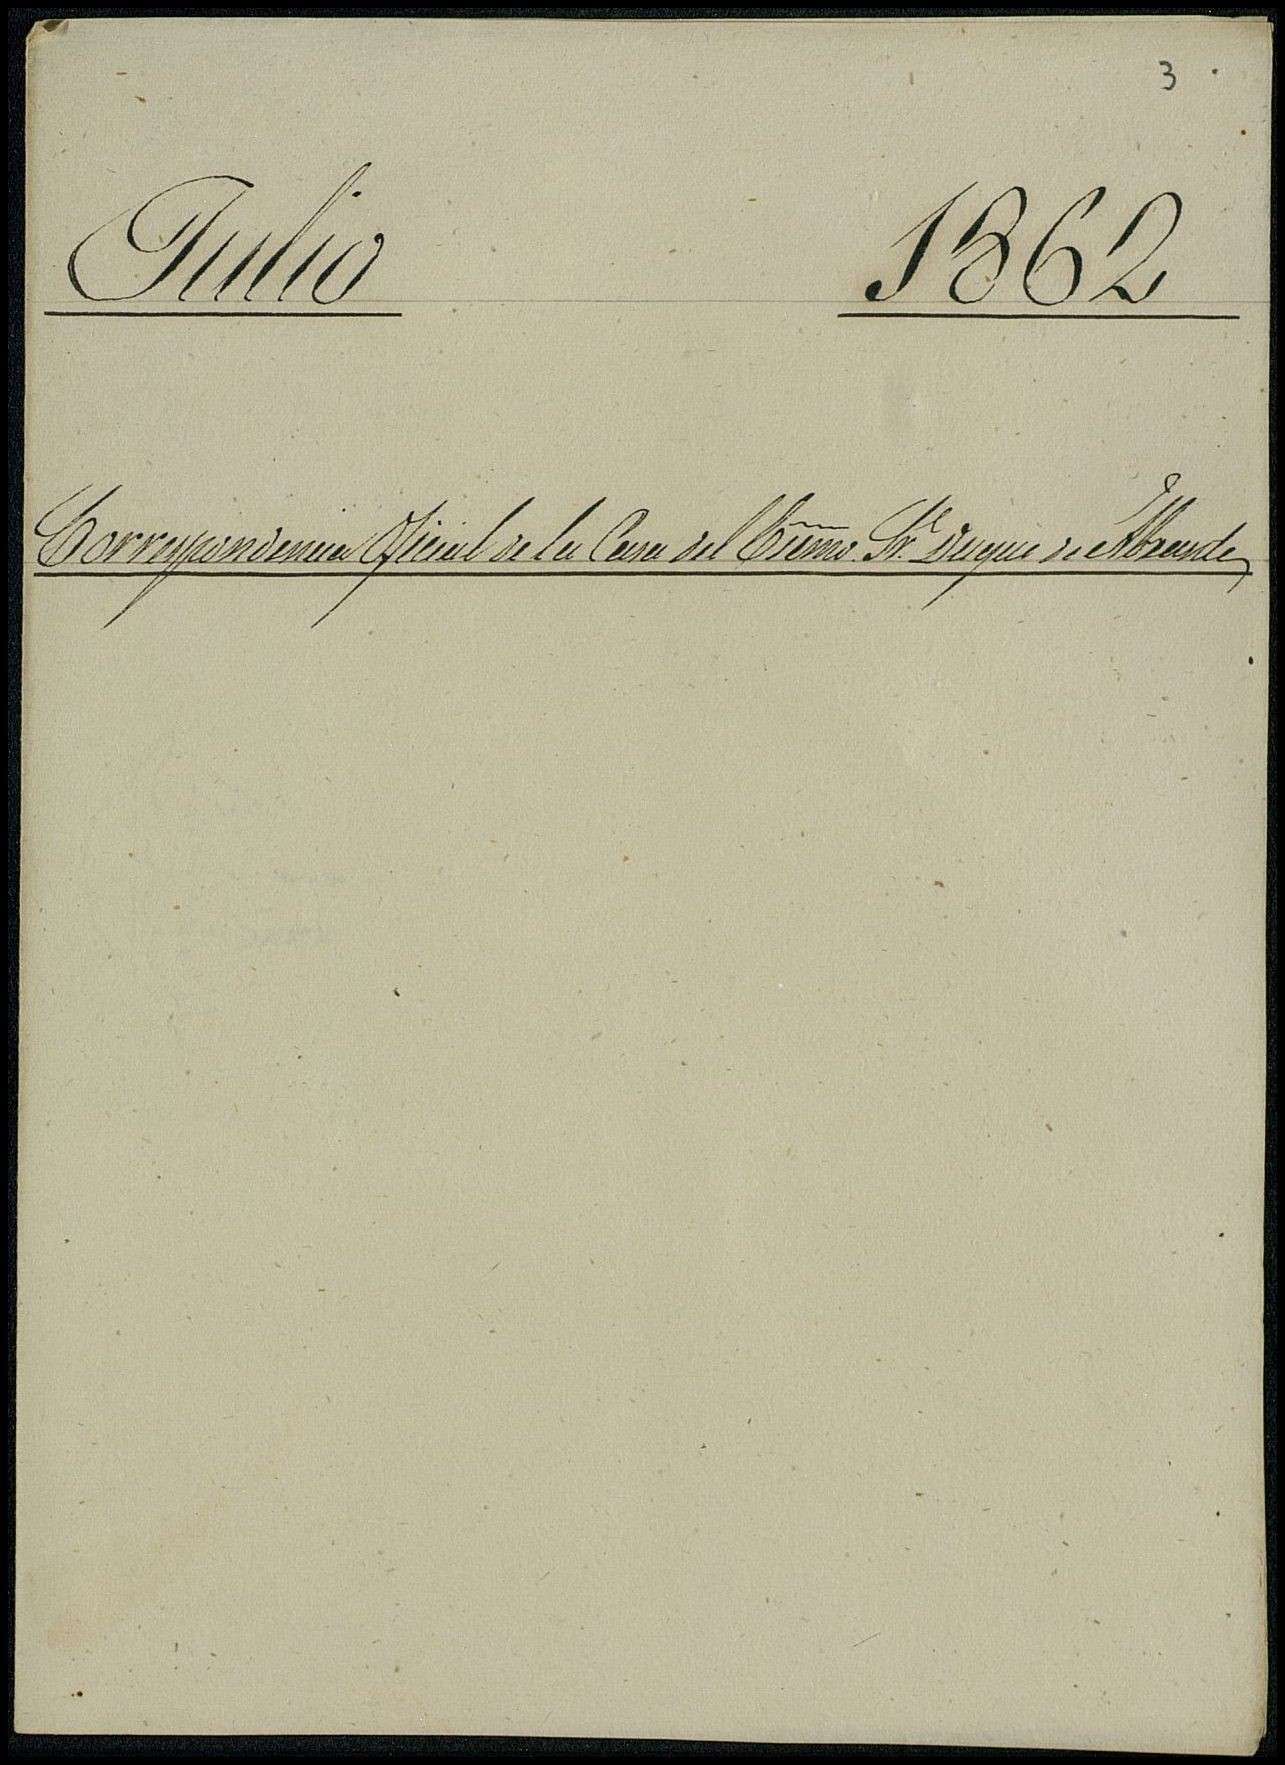 3
Julio 1862
Correspondencia Oficial de la Casa del Exmo. Sr. Duque de Abrantes